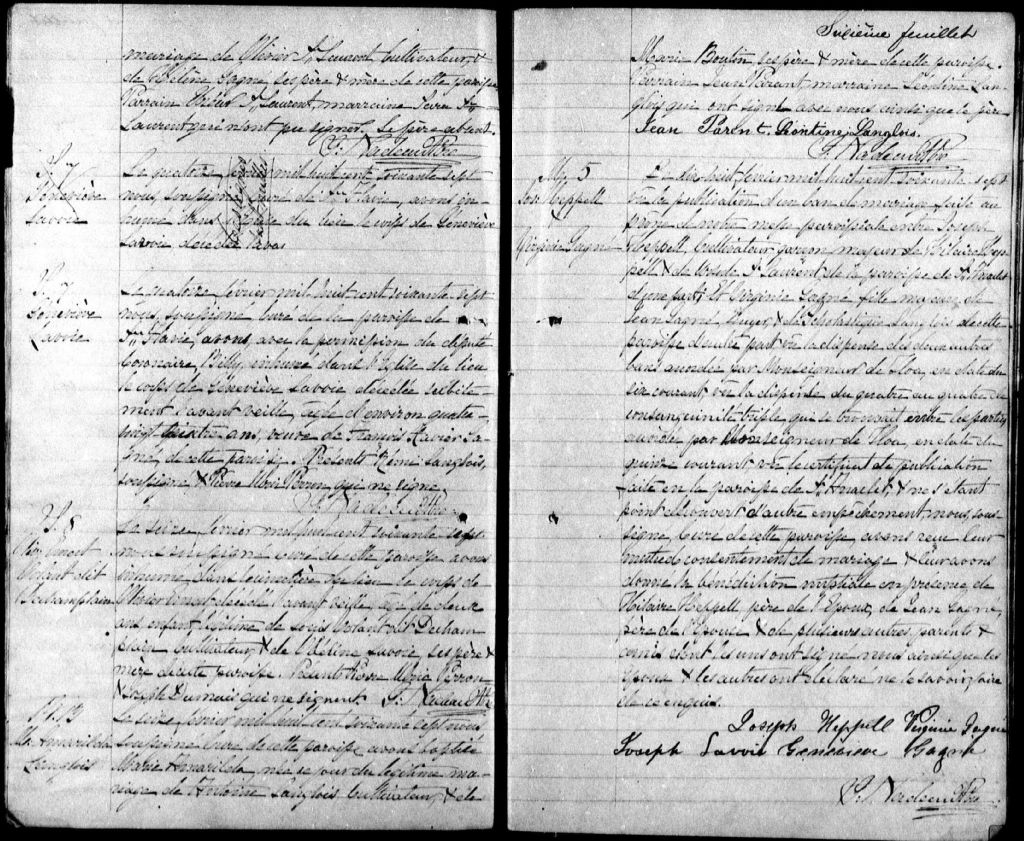 mariage de Olivier St Laurent Cultivateur, &
de Hélène Gagné ses père & mère de cette paroisse
Parrain St Laurent, marraine St
Laurent qui n'ont pu signer. Le père absent.
F. Nadeau Ptre
S. 7
Geneviève
Savoie
Le quatre février mil huit cent soixante sept
nous, soussigné cure de Ste Flavie, avons in-
humé dans du lieu le corps de Geneviève
Savoie décédée
S. 7
Geneviève
Savoie
Le quatre février mil huit cent soixante sept
nous, soussigné curé de la paroisse de
Ste Flavie, avons, avec la permission du député
Coronaire, Billy, inhumé dans l'Eglise du lieu
le corps de Geneviève Savoie décédée subite-
ment l'avant veille, âgée d'environ quatre-
vingt ans, veuve de François Xavier Ga-
gné, de cette paroisse. Présents Rémi Langlois,
soussigné & Pierre Marie Perron qui ne signe
F. Nadeau Ptre
S. 8
Volant dit
Duchamplain
Le seize février mil huit cent soixante sept
nous soussigné curé de cette paroisse avons
inhumé dans le cimetière du lieu le corps de
décédé l'avant veille, âgé de deux
ans enfant légitime de Louis Volant dit Ducham
plain Cultivateur, & de Odéline Savoie, ses père &
mère de cette paroisse. Présents Pierre Marie Perron
& Joseph Dumais qui ne signent. F. Nadeau Ptre
B. 13
M. Amarilda
Langlois
Le seize février mil huit cent soixante sept nous
soussigné curé de cette paroisse avons baptisé
Marie Amarilda, née ce jour du légitime ma-
riage de Antoine Langlois Cultivateur, & de
Sixième feuillet
Marie Boutin ses père & mère de cette paroisse.
Parrain Jean Parant, marraine Léontine Lan-
glois qui ont signé avec nous ainsi que le père
Jean Parent. Léontine Langlois.
F. Nadeau Ptre
M. 5
Jos. Heppell
&
Virginie Gagné
Le dix huit février mil huit cent soixante sept
vu la publication d'un ban de mariage faite au
prône de notre messe paroissiale entre Joseph
Heppell, Cultivateur garçon majeur de Hilaire Hep-
pell & de St Laurent de la paroisse de St Anaclet
d'une part; Et Virginie Gagné fille majeure de
Jean Gagné, & de Scholastique Langlois de cette
paroisse d'autre part vu la dispense des deux autres
bans accordée par Monseigneur de Sloa, en date du
six courant, vu la dispense du quatre au quatre de
consanguinité triple qui se trouvait entre les parties
accordée par Monseigneur de Sloa, en date du
quinze courant vu le certificat de publication
faite en la paroisse de St Anaclet, & ne s'étant
point découvert d'autre empêchement nous, sous-
signé, Curé de cette paroisse avons reçu leur
mutuel consentement de mariage & leur avons
donné la bénédiction nuptiale en présence de
Hilaire Heppell père de l'Epoux, de Jean Gagné,
père de l'Epouse & de plusieurs autres, parents &
amis dont les uns ont signé nous ainsi que les
époux & les autres ont déclaré ne le savoir faire
de ce enquis.
Joseph Heppell Virginie Gagné
Joseph Savoie Geneviève Gagné
F. Nadeau Ptre